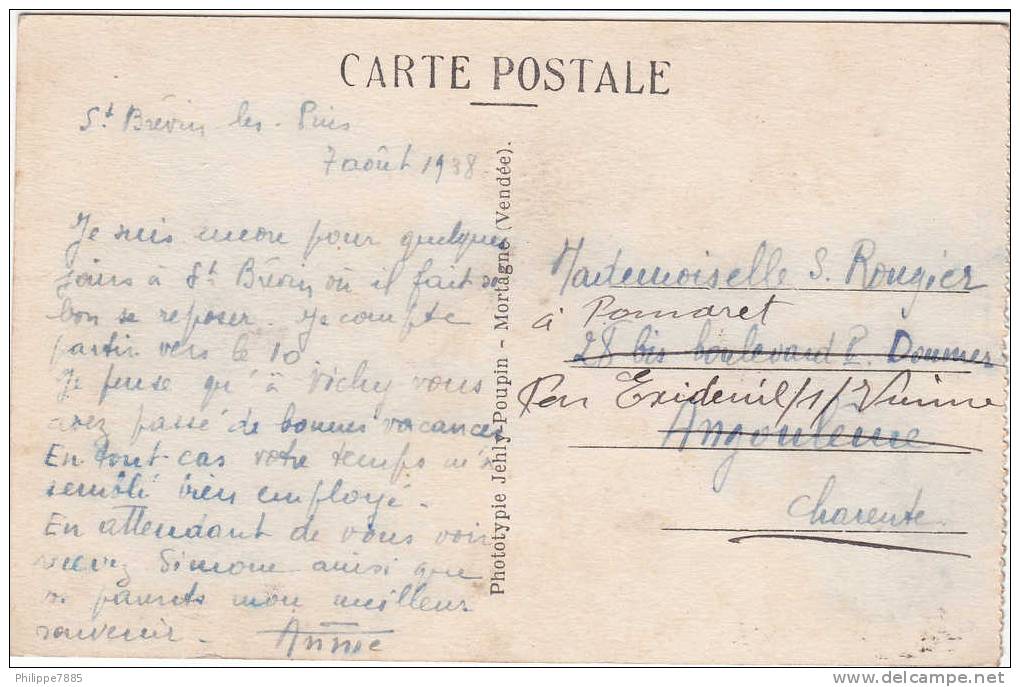 CARTE POSTALE
St Brévin les-Pins
7 août 1938
Je suis encore pour quelques
jours à St Brévin où il fait si
bon se reposer. Je compte
partir vers le 10
Je pense qu'à Vichy vous
avez passé de bonnes vacances
En tout cas votre temps m'a
semblé bien employé.
En attendant de vous voir
recevez Simone ainsi que
vs parents mon meilleur
souvenir.
Annie
Phototypie Jéhly-Poupin - Mortagne (Vendée).
Mademoiselle S. Rougier
à Pomaret
28 bis boulevard P. Doumer
Par Exideuil/s/Vienne
Angoulême
Charente
Philippe7885
delcampe.net